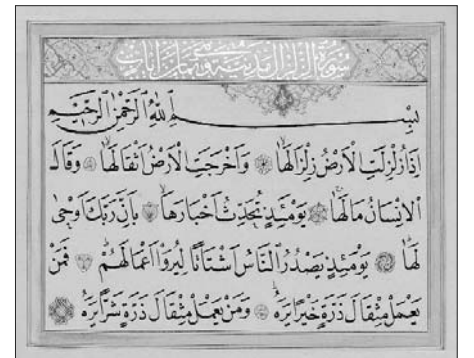 سورة الزلزال مدنية وهي ثمان آيات
بِسْمِ اللهِ الرَّحْمٰنِ الرَّحِيمِ
اِذَا زُلْزِلَتِ الْاَرْضُ زِلْزَالَهَا وَاَخْرَجَتِ الْاَرْضُ اَثْقَالَهَا وَقَالَ
الْاِنْسَانُ مَالَهَا يَوْمَئِذٍ تُحَدِّثُ اَخْبَارَهَا بِاَنَّ رَبَّكَ اَوْحٰى
لَهَا يَوْمَئِذٍ يَصْدُرُ النَّاسُ اَشْتَاتًا لِيُرَوْا اَعْمَالَهُمْ فَمَنْ
يَعْمَلْ مِثْقَالَ ذَرَّةٍ خَيْرًا يَرَهُ وَمَنْ يَعْمَلْ مِثْقَالَ ذَرَّةٍ شَرًّا يَرَهُ